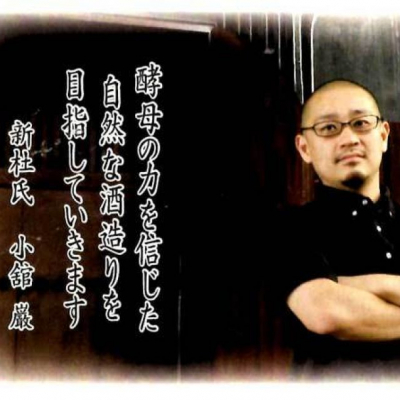 酵母の力を信じた
自然な酒造りを
目指していきます
新杜氏 小舘 巌